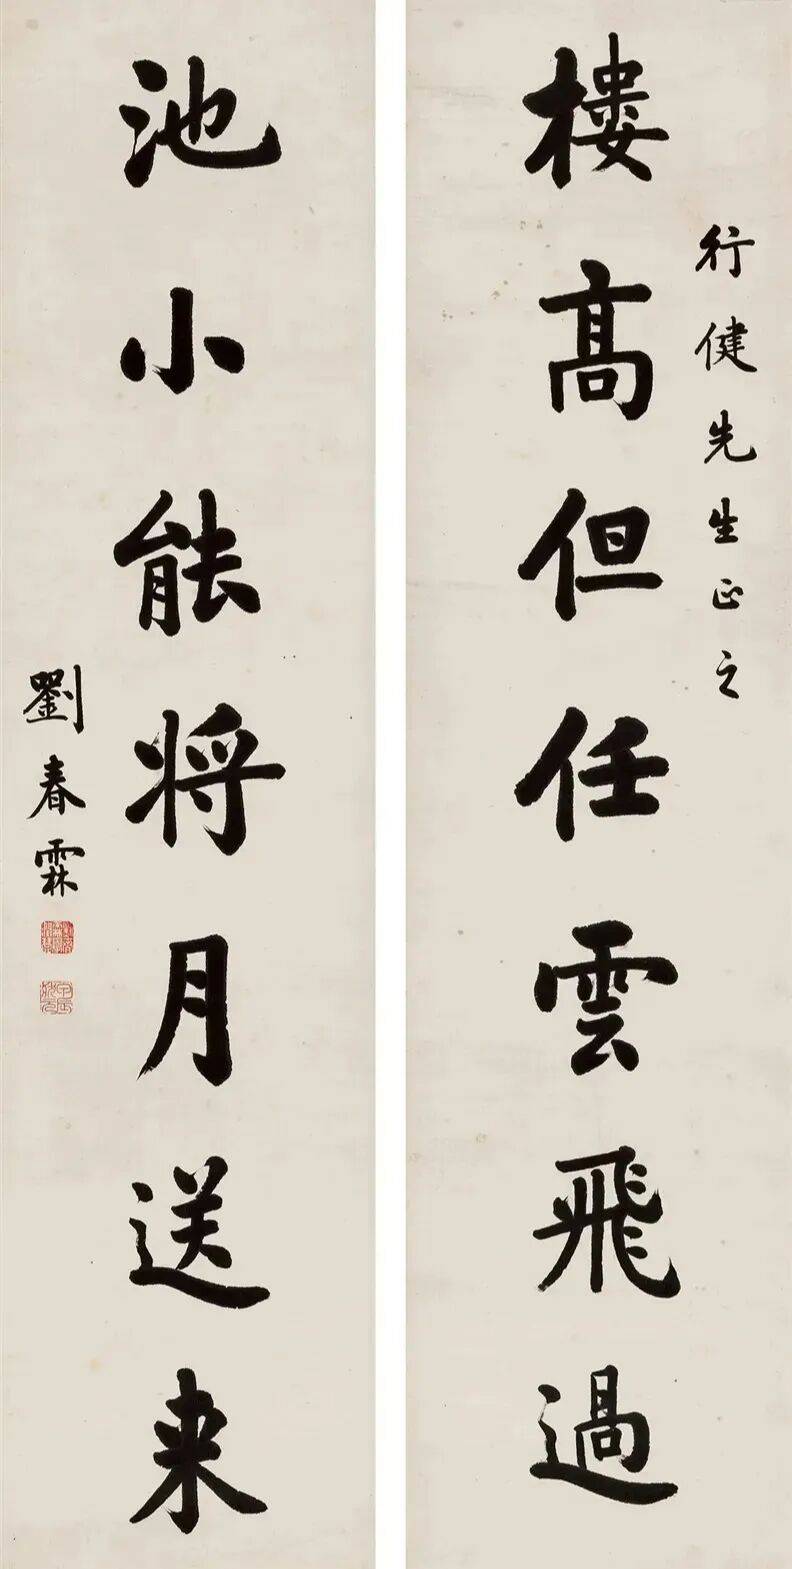 樓高但任雲飛過
行健先生正之
池小能将月送来
劉春霖